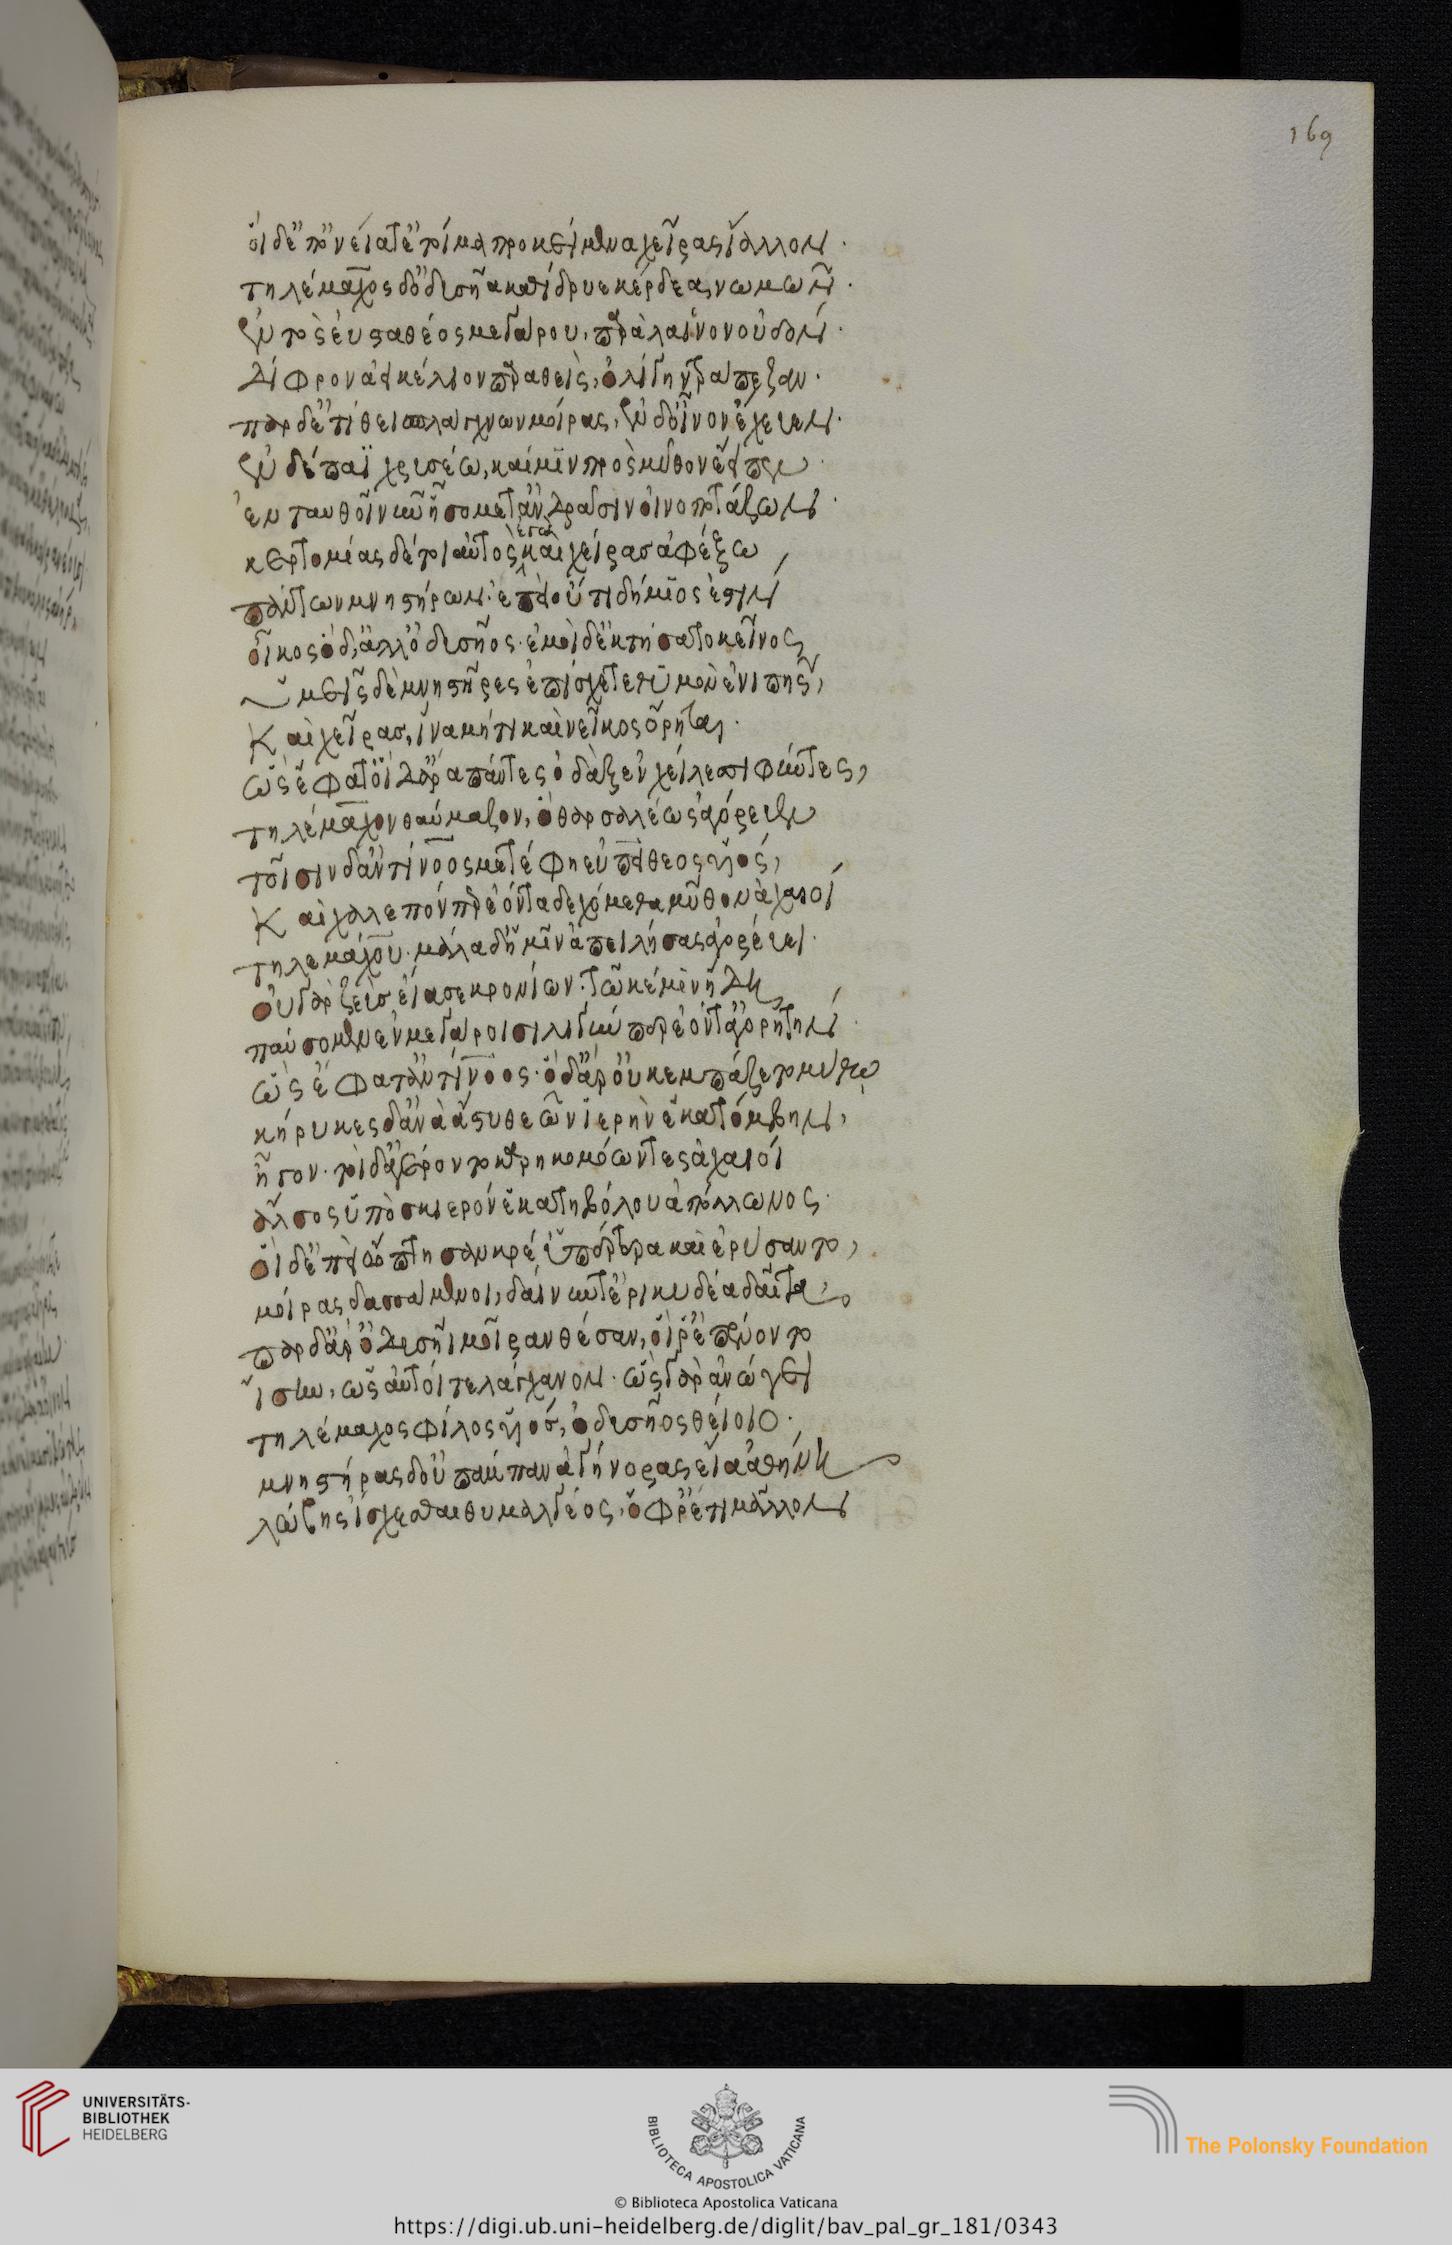 169
οἱ δ' ἐπ' ὀνείαθ' ἑτοῖμα προκείμενα χεῖρας ἴαλλον.
τηλέμαχος δ' ὀδυσῆα καθίδρυε κέρδεα νωμῶν.
ἐντὸς ἐυσταθέος μεγάρου, παρὰ λάινον οὐδόν.
δίφρον ἀεικέλιον παραθεὶς, ὀλίγην τε τράπεζαν.
πὰρ δ' ἐτίθει σπλάγχνων μοίρας, ἐν δ' οἶνον ἔχευεν.
ἐν δέπαϊ χρυσέω, καί μιν πρὸς μῦθον ἔειπεν.
ἐνταυθοῖ νῦν ἧσο μετ' ἀνδράσιν οἰνοποτάζων.
κερτομίας δέ τοι αὐτὸς ἐγὼ καὶ χεῖρας ἀφέξω
πάντων μνηστήρων. ἐπεὶ οὔ τι δήμιός ἐστιν
οἶκος ὅδ', ἀλλ' ὀδυσῆος. ἐμοὶ δ' ἐκτήσατο κεῖνος,
ὑμεῖς δὲ μνηστῆρες ἐπίσχετε θυμὸν ἐνιπῆς,
Καὶ χειρῶν, ἵνα μή τις
ὣς ἔφαθ' οἱ δ' ἄρα πάντες ὀδὰξ ἐν χείλεσι φύντες,
τηλέμαχον θαύμαζον, ὃ θαρσαλέως ἀγόρευεν
τοῖσιν δ' ἀντίνοος μετέφη εὐπείθεος υἱός,
Καὶ χαλεπόν περ ἐόντα δεχώμεθα μῦθον ἀχαιοί
τηλεμάχου. μάλα δ' ἧμιν ἀπειλήσας ἀγορεύει.
οὐ γὰρ ζεὺς εἴασε κρονίων. τῶ κέ μιν ἤδη
παύσαμεν ἐν μεγάροισι λιγύν περ ἐόντ' ἀγορητήν.
ὣς ἔφατ' ἀντίνοος. ὁ δ' ἄρ' οὐκ ἐμπάζετο μύθων
κήρυκες δ' ἀνὰ ἄστυ θεῶν ἱερὴν ἑκατόμβην,
ἦγον. τοὶ δ' ἀγέροντο καρηκομόωντες ἀχαιοί
ἄλσος ὕπο σκιερὸν ἑκατηβόλου ἀπόλλωνος.
οἱ δ' ἐπεὶ ὤπτησαν κρέ' ὑπέρτερα καὶ ἐρύσαντο,
μοίρας δασσάμενοι, δαίνυντ' ἐρικυδέα δαῖτα,
πὰρ δ' ἄρ' ὀδυσῆι μοῖραν θέσαν, οἳ ῥ' ἐπένοντο
ἴσην, ὡς αὐτοί περ ἐλάγχανον. ὣς γὰρ ἀνώγει
τηλέμαχος φίλος υἱός, ὀδυσῆος θείοιο.
μνηστήρας δ' οὐ πάμπαν ἀγήνορας εἴα ἀθήνη
λώβης ἴσχεσθαι θυμαλγέος, ὄφρ' ἔτι μᾶλλον
UNIVERSITÄTS-
BIBLIOTHEK
HEIDELBERG
BIBLIOTECA APOSTOLICA VATICANA
© Biblioteca Apostolica Vaticana
The Polonsky Foundation
https://digi.ub.uni-heidelberg.de/diglit/bav_pal_gr_181/0343